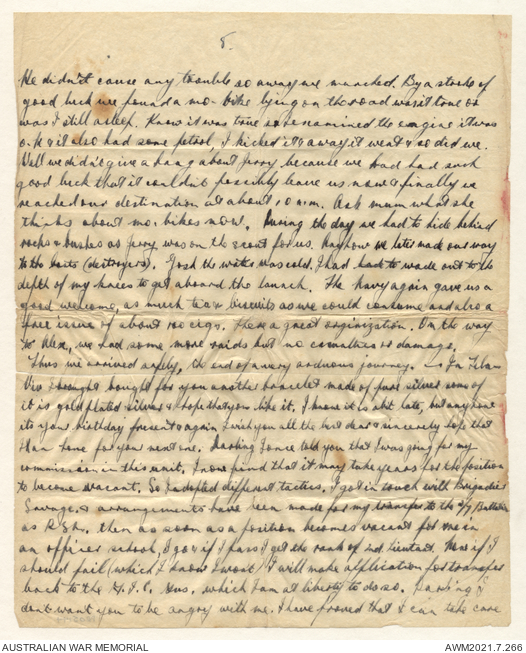 8.
He didn't cause any trouble so away we marched. By a stroke of
good luck we found a mo-bike lying on the road was it true or
was I still asleep. Know it was true so examined the engine it was
o.k & it also had some petrol, I kicked it & away it went & so did we.
Well we didn't give a hang about Jerry because we had had such
good luck that it couldn't possibly leave us now & finally we
reached our destination at about 10 a.m. Ask mum what she
thinks about mo. bikes now. During the day we had to hide behind
rocks & bushes as Jerry was on the scout for us. Anyhow we later made our way
to the boats (destroyers). Gosh the water was cold. I had to wade out to the
depth of my knees to get aboard the launch. The Navy again gave us a
good welcome, as much tea & biscuits as we could consume and also a
free issue of about 100 cigs. There's a great orginization. On the way
to Alex, we had some more raids but no casualties or damage.
Thus we arrived safely, the end of a very arduous journey. In Tel-a-
Viv I bought for you another bracelet made of pure silver some of
it is gold plated silver & hope that you like it, I know it is a bit late, but anyhow
its your birthday present & again I wish you all the best dear & sincerely hope that
I am home for your next one. Darling I once told you that I was going for my
commission in this unit, I now find that it may take years for the position
to become vacant. So I adopted different tactics. I got in touch with Brigadier
Savage & arrangements have been made for my transfer to the 2/7 Battalion
as R.S.M. then as soon as a position becomes vacant for me in
an officer school, I go & if I pass I get the rank of 2nd. Lieutant. Now if I
should fail (which I know I wont) I will make application for transfer
back to the H.Q. Gus. which I am at liberty to do so. Darling I
don't want you to be angry with me. I have proved that I can take care
AUSTRALIAN WAR MEMORIAL
AWM2021.7.266